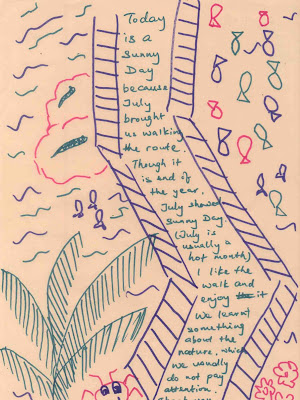 Today
is a
Sunny
Day
because
July
brought
us walking
the route.
Though it
is end of
the year.
July showed
Sunny Day.
(July is
usually a
hot month)
I like the
walk and
enjoy it
We learnt
something
about the
nature, which
we usually
do not pay
attention.